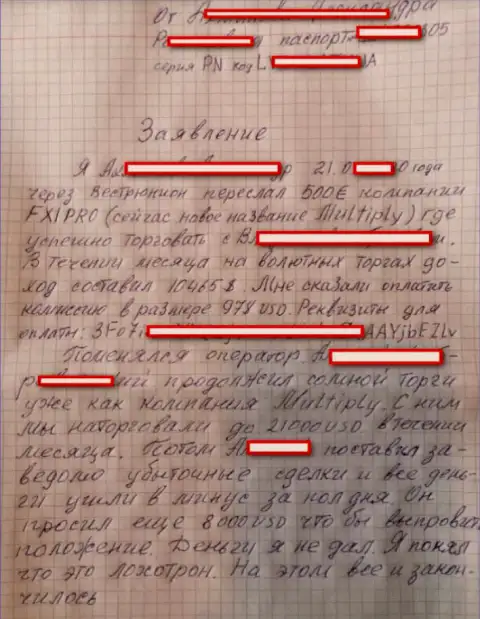 От А Александра
Р паспорт 305
серия PN код L A
Заявление
Я Ал др 21.0 0 года
через Вестрюнион переслал 500€ компании
FXIPRO (сейчас новое название Multiply) где
успешно торговать с Вл м.
В течении месяца на волютных торгах до-
ход составил 10465$. Мне сказали оплатить
комисию в размере 978 USD. Реквизиты для
оплаты: 3Fo7i AAYjbFZLv
Поменялся оператор. А
р ий продолжил сомной торги
уже как компания Multiply. С ним
мы наторговали до 21000 USD в течении
месяца. Потом А поставил за-
ведомо убыточные сделки и все день-
ги ушли в минус за пол дня. Он
просил еще 8000 USD что бы выпровит
положение. Деньги я не дал. Я понял
что это лохотрон. На этом все и закон-
чилось